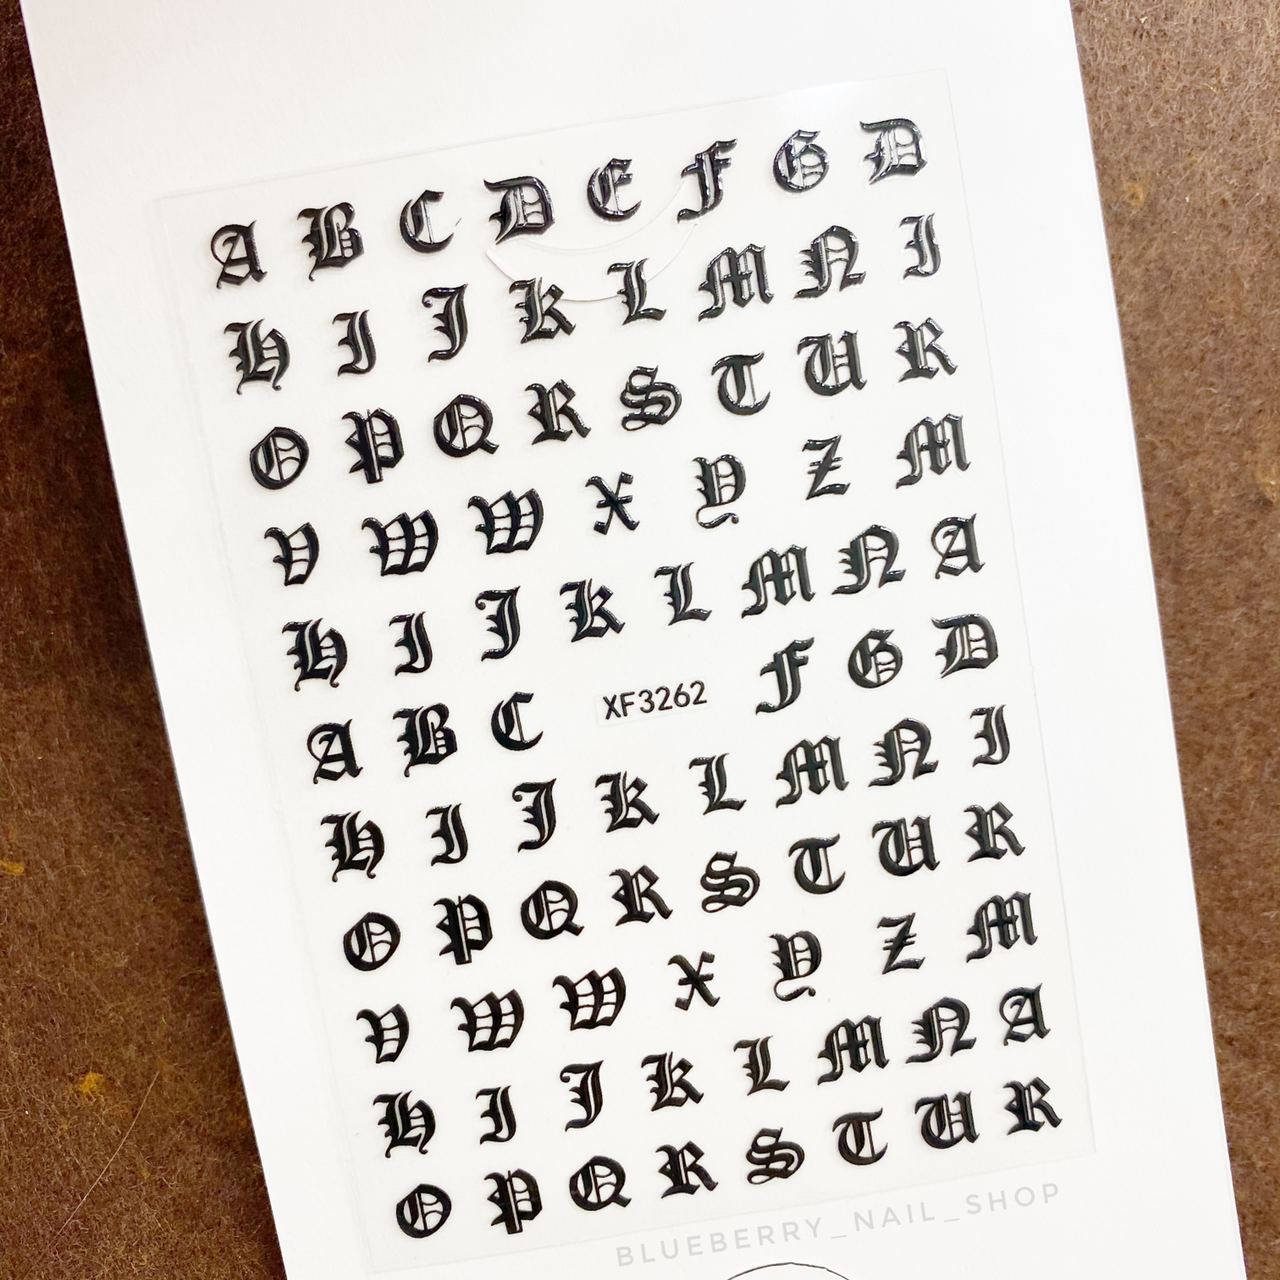 A B C D E F G D
H I J K L M N I
O P Q R S T U R
V W W X Y Z M
H I J K L M N A
A B C XF3262 F G D
H I J K L M N I
O P Q R S T U R
V W W X Y Z M
H I J K L M N A
O P Q R S T U R
BLUEBERRY_NAIL_SHOP